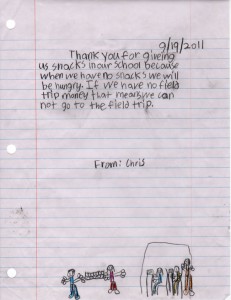 9/19/2011
Thank you for giveing
us snacks in our school because
when we have no snacks we will
be hungry. If we have no field
trip money that means we can
not go to the field trip.
From: Chris